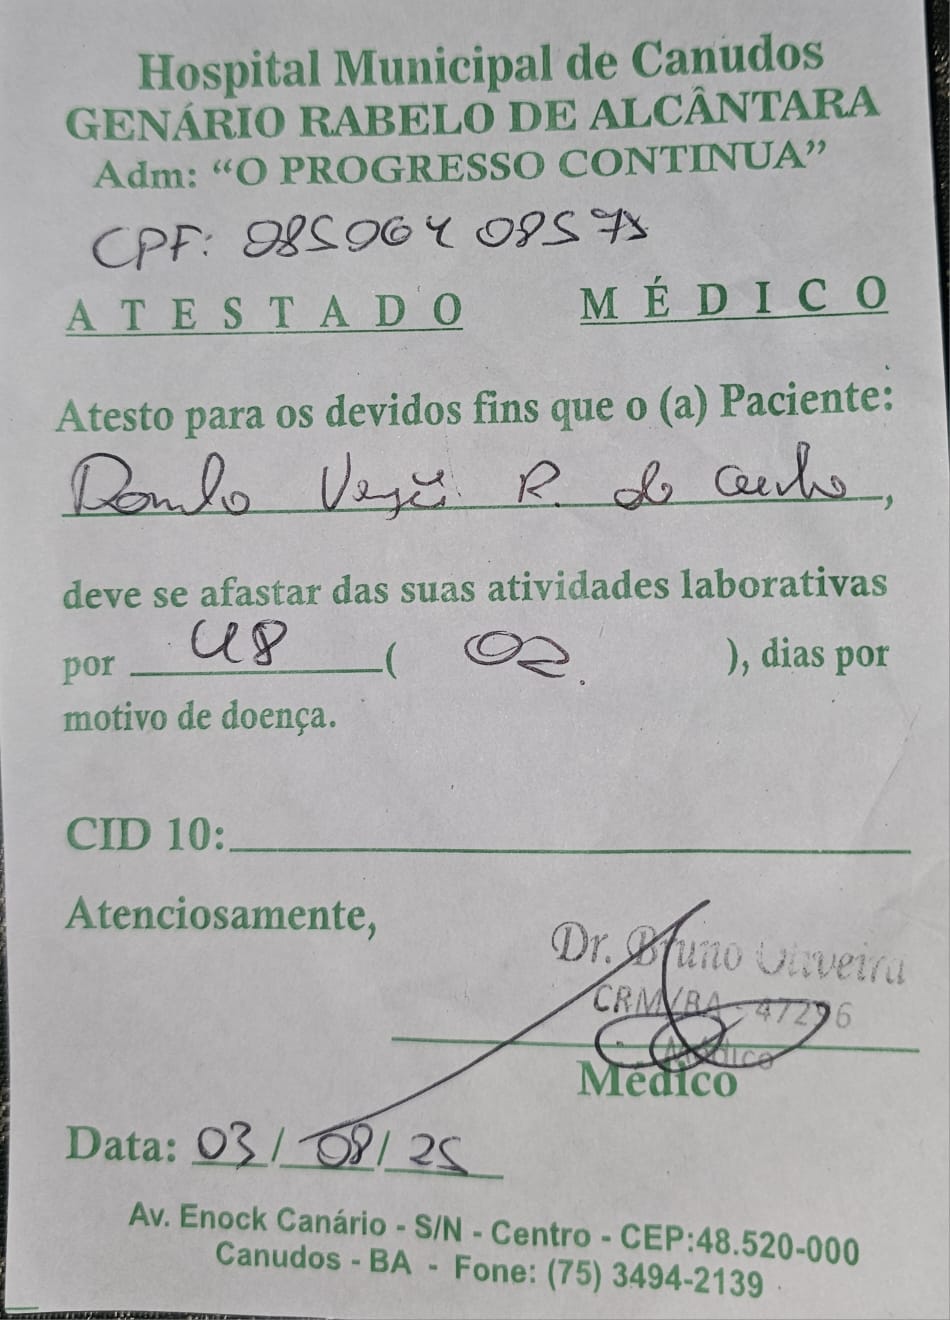 Hospital Municipal de Canudos
GENÁRIO RABELO DE ALCÂNTARA
Adm: “O PROGRESSO CONTINUA”
CPF:
ATESTADO MÉDICO
Atesto para os devidos fins que o (a) Paciente:
R. da ,
deve se afastar das suas atividades laborativas
por 48 ( 02 ), dias por
motivo de doença.
CID 10:
Atenciosamente,
Dr. Bruno Oliveira
CRM/BA - 47296
Médico
Médico
Data: 03 / 08 / 25
Av. Enock Canário - S/N - Centro - CEP:48.520-000
Canudos - BA - Fone: (75) 3494-2139